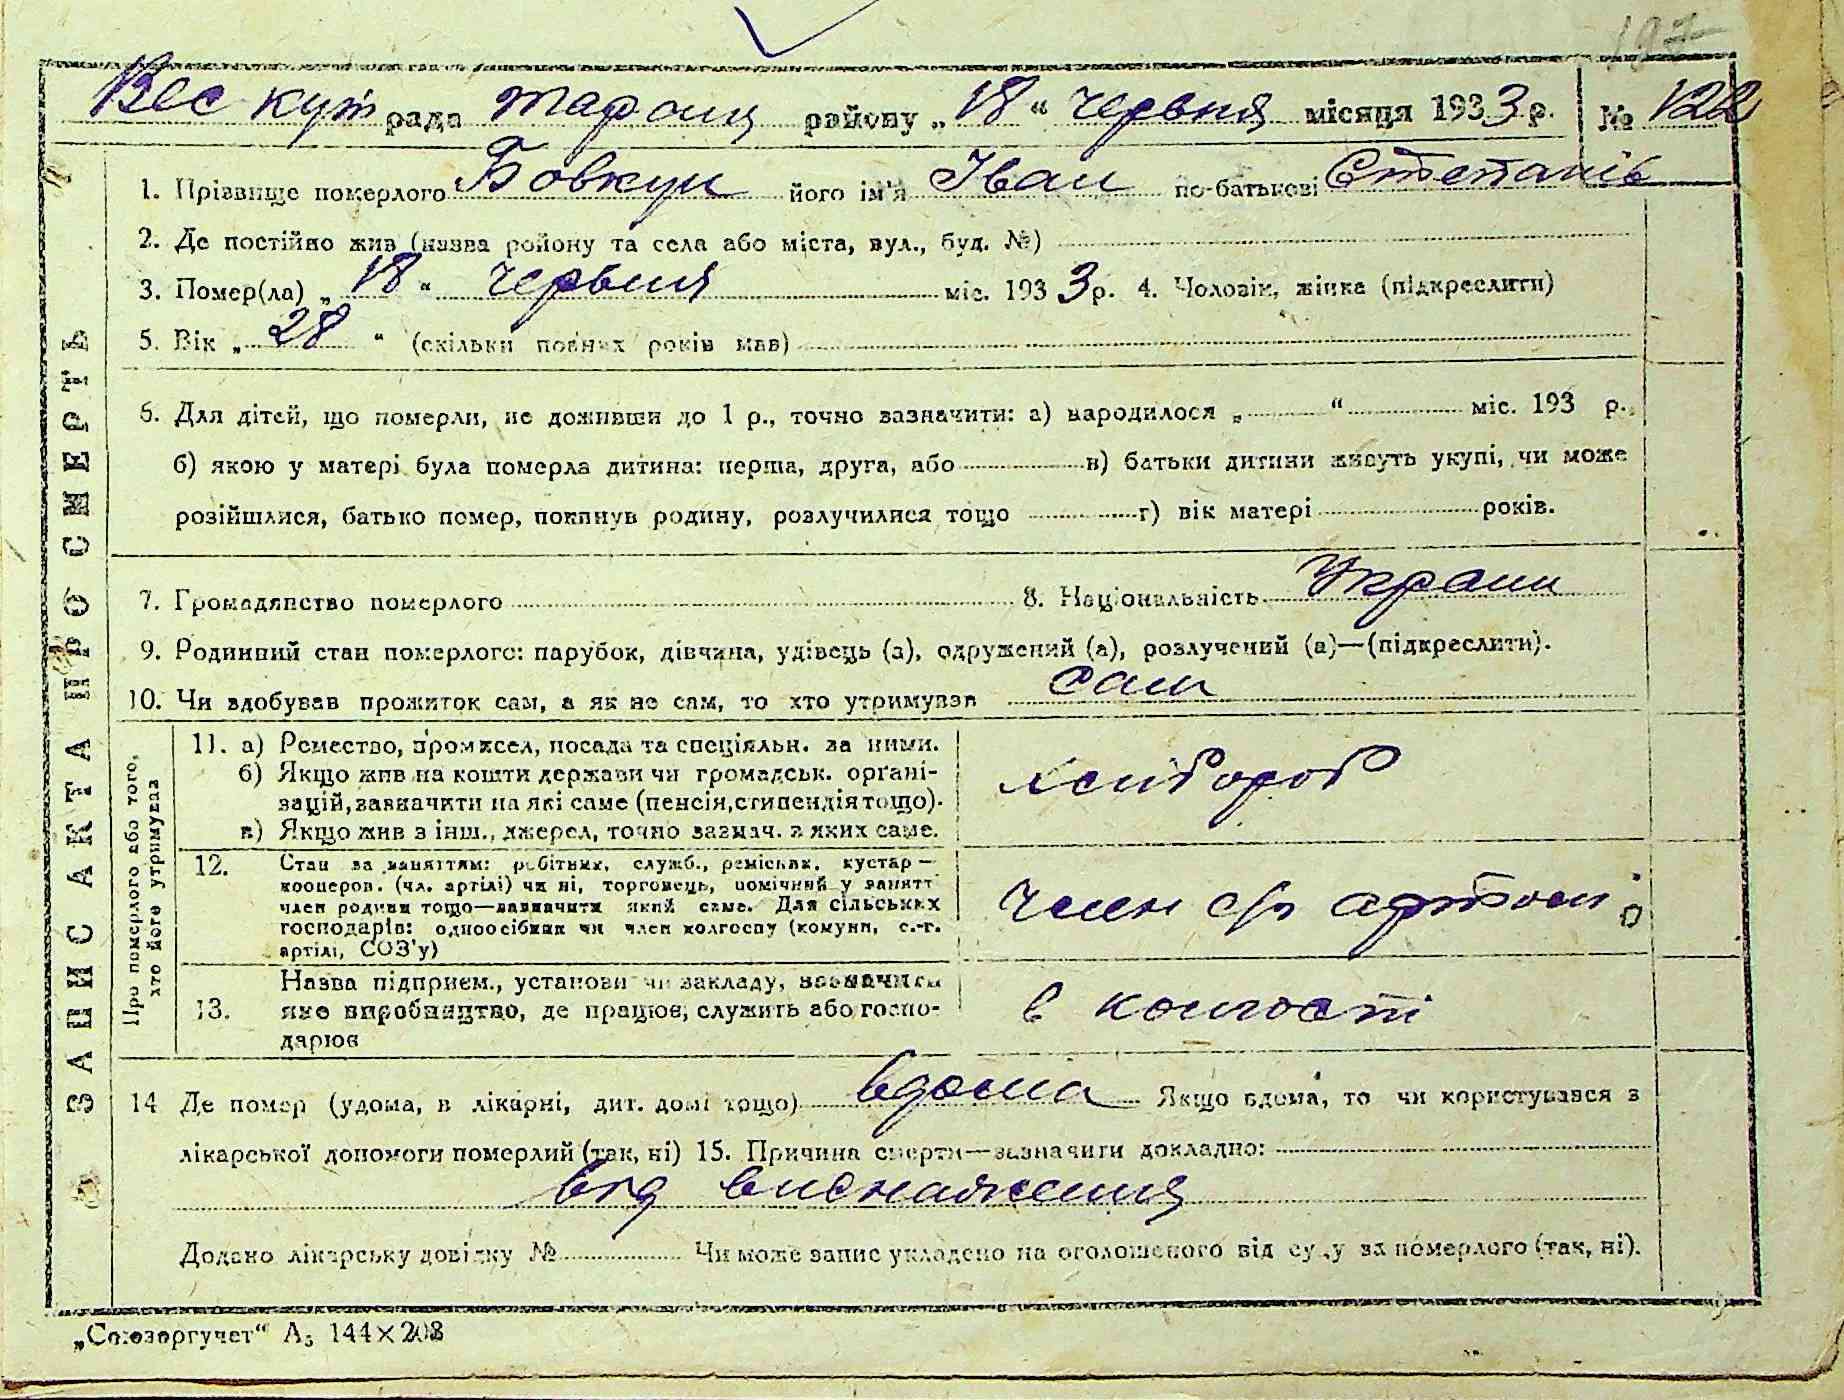 Вес кут рада Таращ району „18“ червня місяця 1933 р. № 122
1. Прізвище померлого Бовкун його ім'я Іван по-батькові Степанів
2. Де постійно жив (назва району та села або міста, вул., буд. №)
3. Помер(ла) „18“ червня міс. 1933 р. 4. Чоловік, жінка (підкреслити)
5. Вік „28“ (скільки повних років мав)
6. Для дітей, що померли, не доживши до 1 р., точно зазначити: а) народилося „ “ міс. 193 р.
б) якою у матері була померла дитина: перша, друга, або в) батьки дитини живуть укупі, чи може
розійшлися, батько помер, покинув родину, розлучилися тощо г) вік матері років.
7. Громадянство померлого 8. Національність Украин
9. Родинний стан померлого: парубок, дівчина, удівець (а), одружений (а), розлучений (а)—(підкреслити).
10. Чи здобував прожиток сам, а як не сам, то хто утримував сам
ЗАПИС АКТА ПРО СМЕРТЬ
Про померлого або того,
хто його утримував
11. а) Ремество, промисел, посада та спеціяльн. за ними.
б) Якщо жив на кошти держави чи громадськ. органі-
зацій, зазначити на які саме (пенсія, стипендія тощо).
в) Якщо жив з інш., джерел, точно зазнач. з яких саме.
хлібороб
12. Стан за заняттям: робітник, служб., ремісник, кустар—
кооперов. (чл. артілі) чи ні, торговець, помічний у занятт
член родини тощо—зазначити який саме. Для сільських
господарів: одноосібник чи член колгоспу (комуни, с.-г.
артілі, СОЗ'у)
член с/г артілі
13. Назва підприєм., установи чи закладу, зазначити
яке виробництво, де працює, служить або госпо-
дарює
в колгоспі
14 Де помер (удома, в лікарні, дит. домі тощо) вдома Якщо вдома, то чи користувався з
лікарської допомоги померлий (так, ні) 15. Причина смерти—зазначити докладно:
від виснаження
Додано лікарську довідку № Чи може запис укладено на оголошеного від суду за померлого (так, ні).
„Союзоргучет“ А5 144×208